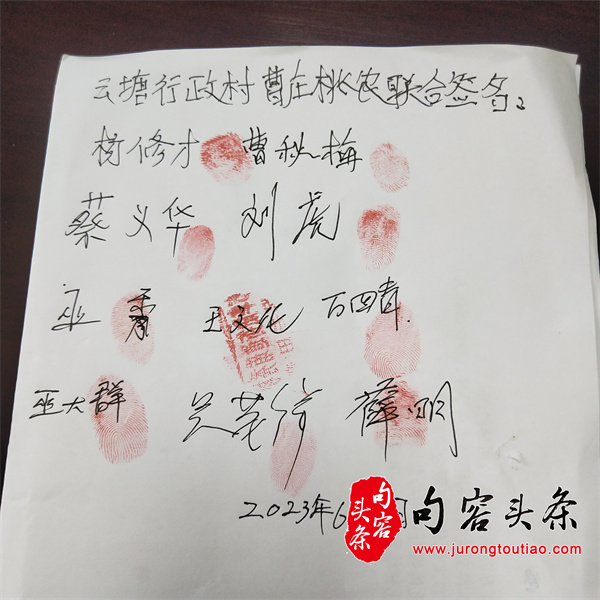 云塘行政村曹庄桃农联合签名。
杨修才 曹秋梅
蔡义华 刘虎
巫 王文化
巫大群 薛明
2023年6
句容头条
句容头条
www.jurongtoutiao.com